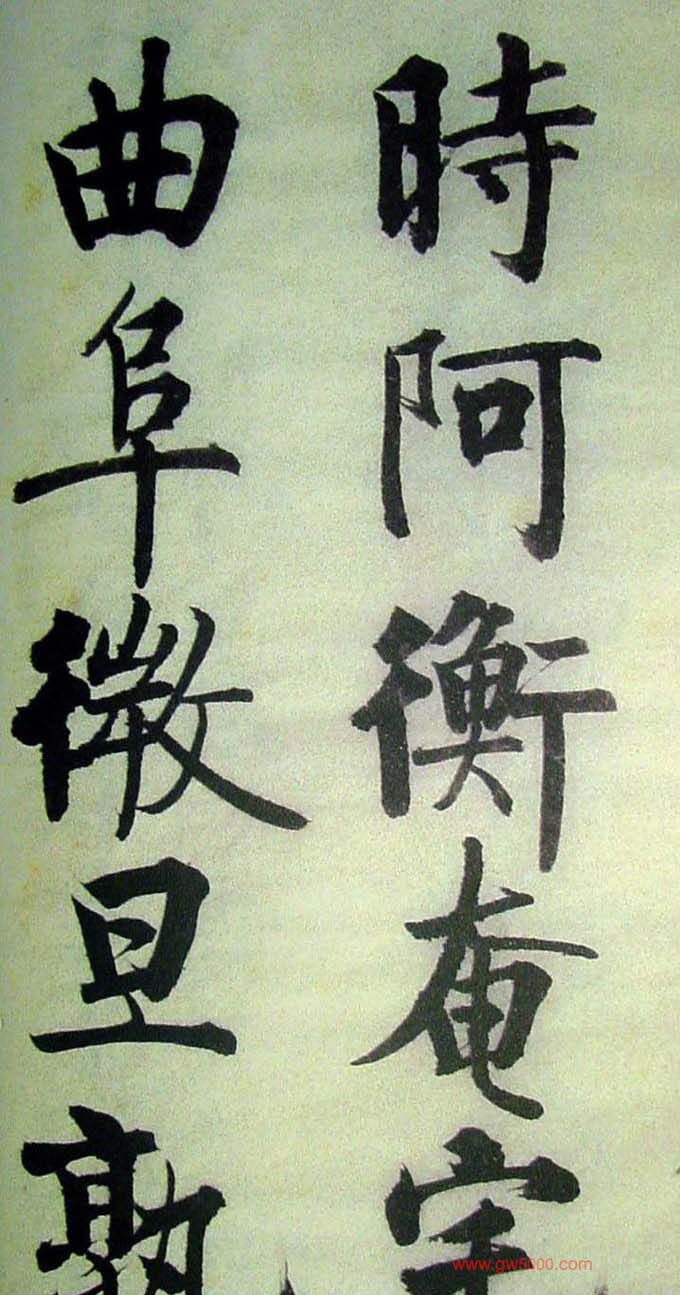 時阿衡奄宅
曲阜微旦孰
www.gw5000.com